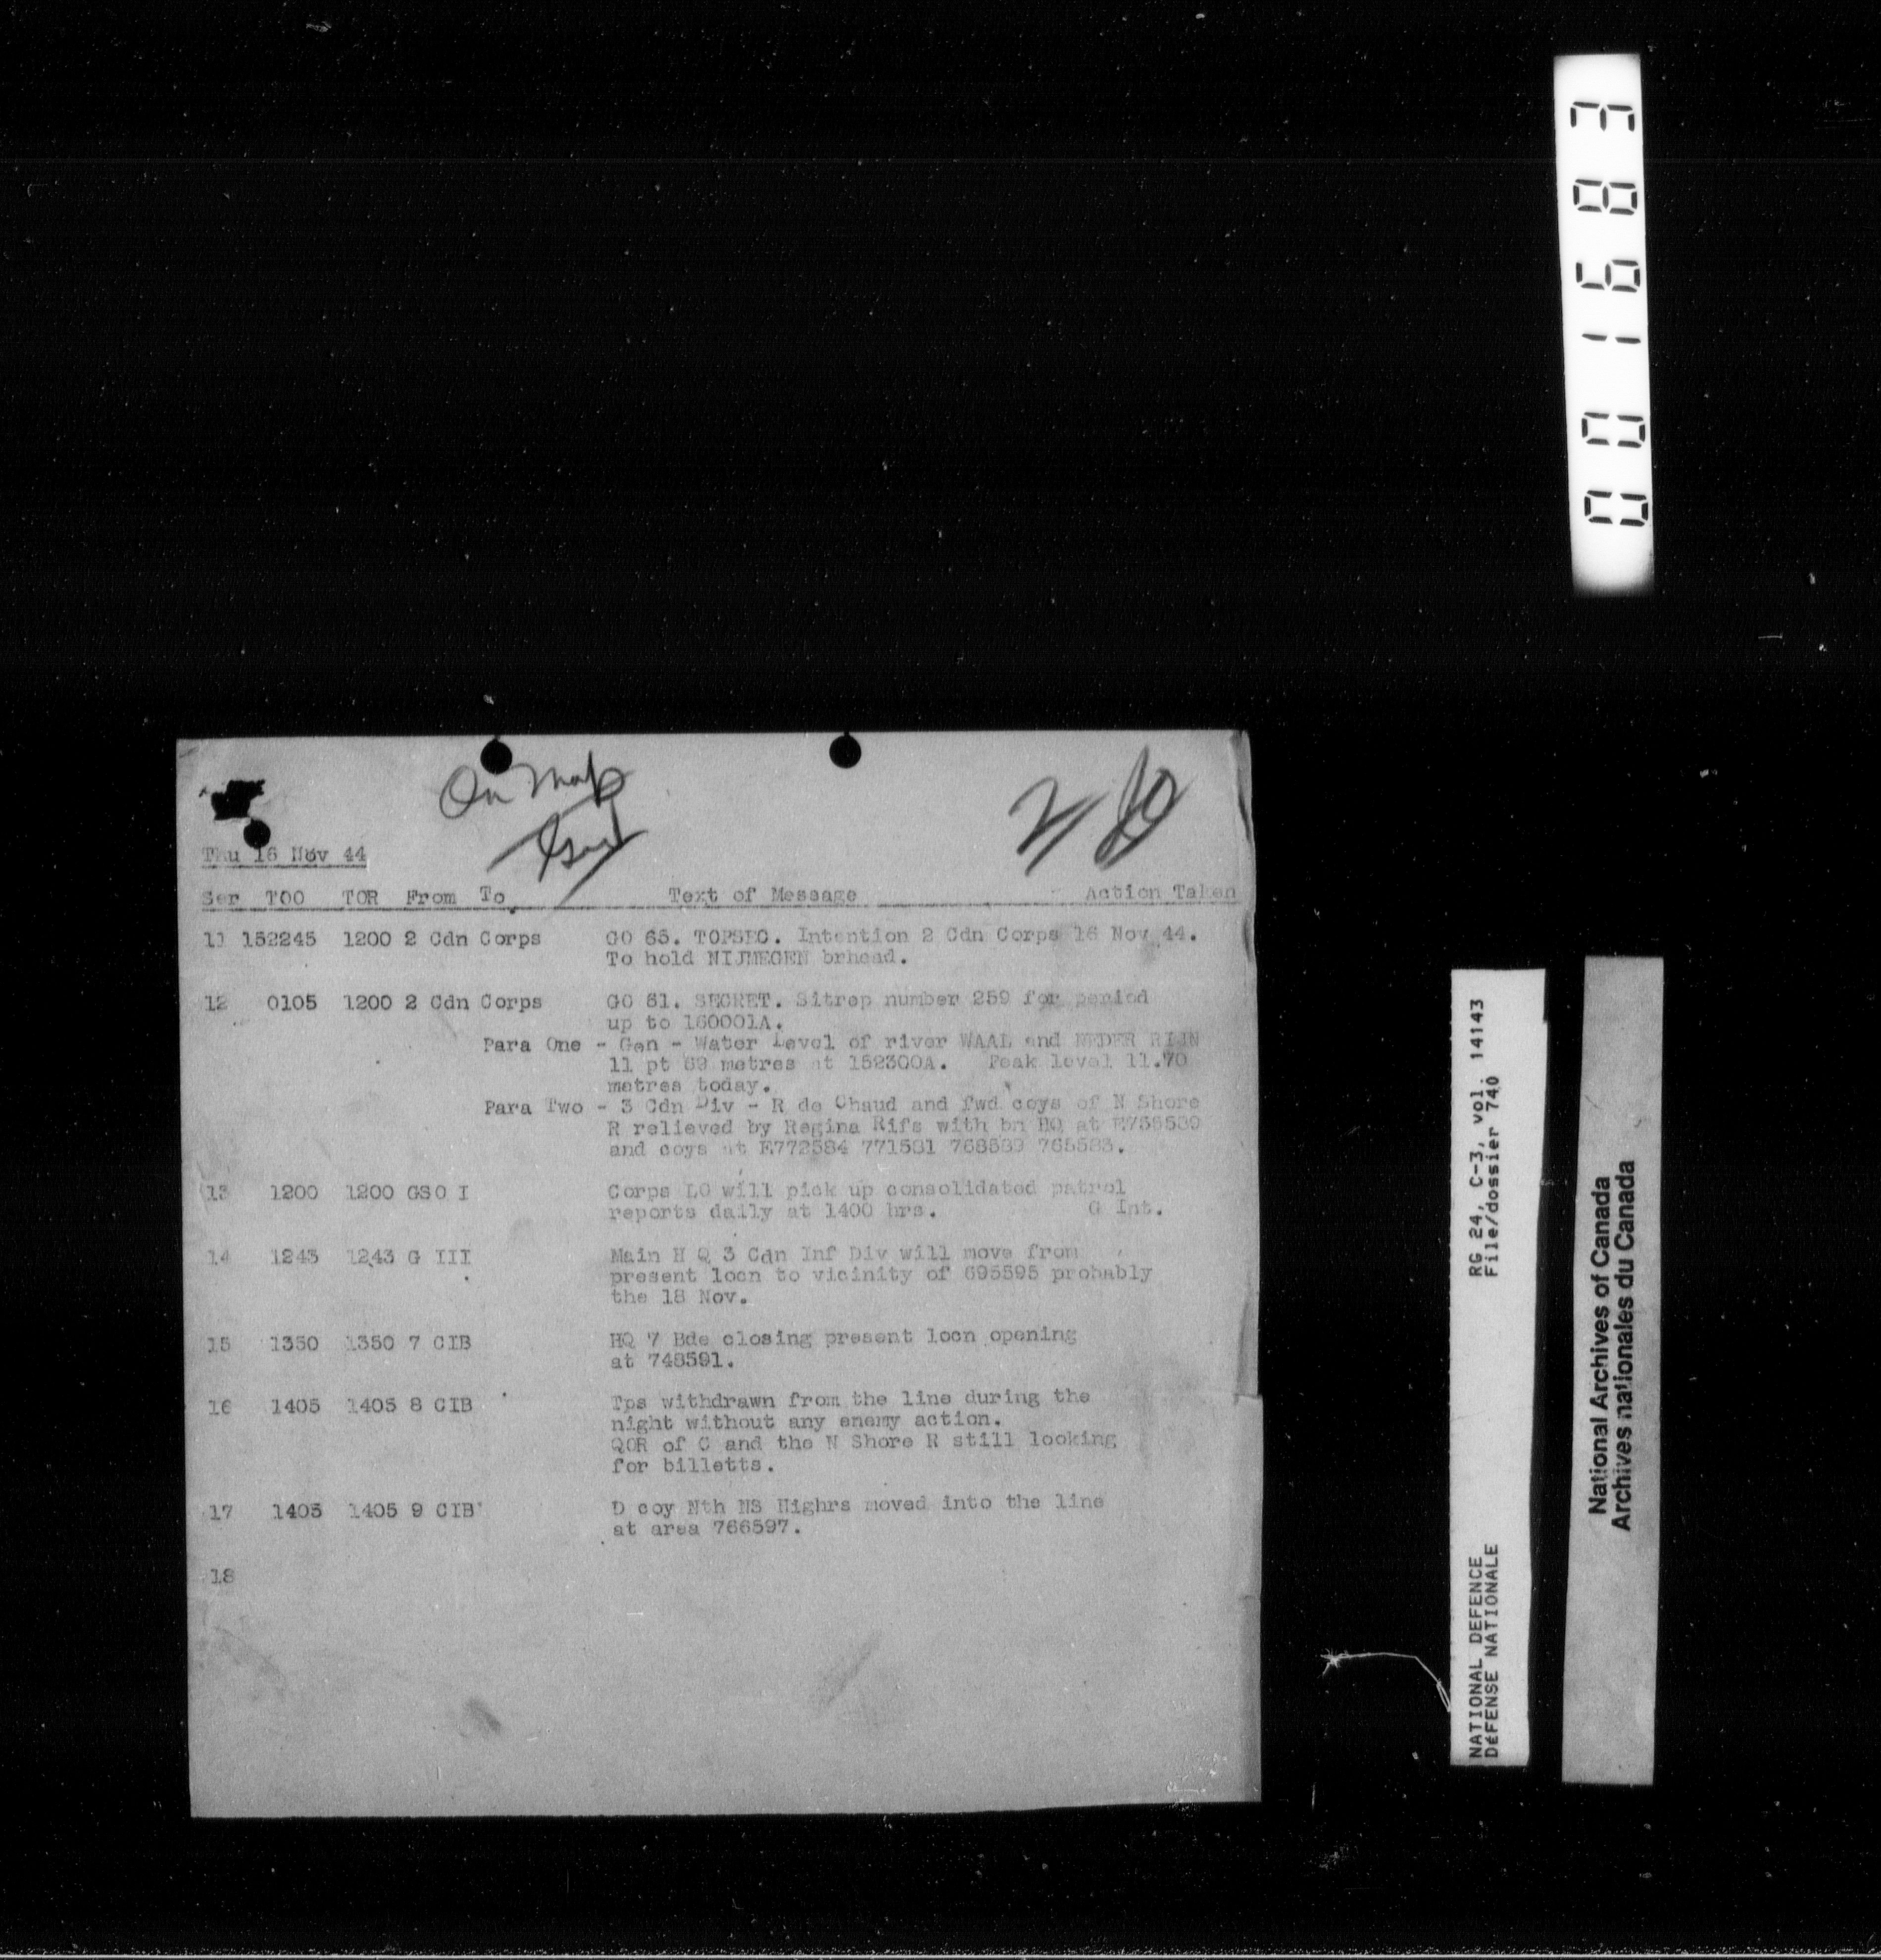 001683
On Map
Thu 16 Nov 44
Ser TOO TOR From To Text of Message Action Taken
11 152245 1200 2 Cdn Corps GO 65. TOPSEC. Intention 2 Cdn Corps 16 Nov 44.
To hold NIJMEGEN brhead.
12 0105 1200 2 Cdn Corps GO 61. SECRET. Sitrep number 259 for period
up to 160001A.
Para One - Gen - Water Level of river WAAL and NEDER RIJN
11 pt 69 metres at 152300A. Peak level 11.70
metres today.
Para Two - 3 Cdn Div - R de Chaud and fwd coys of N Shore
R relieved by Regina Rifs with bn HQ at
and coys at E772584 771581 768589 765583.
13 1200 1200 GSO I Corps LO will pick up consolidated patrol
reports daily at 1400 hrs. G Int.
14 1243 1243 G III Main H Q 3 Cdn Inf Div will move from
present locn to vicinity of 695595 probably
the 18 Nov.
15 1350 1350 7 CIB HQ 7 Bde closing present locn opening
at 748591.
16 1405 1405 8 CIB Tps withdrawn from the line during the
night without any enemy action.
QOR of C and the N Shore R still looking
for billetts.
17 1405 1405 9 CIB D coy Nth NS Highrs moved into the line
at area 766597.
18
RG 24, C-3, vol. 14143
File/dossier 740
NATIONAL DEFENCE
DÉFENSE NATIONALE
National Archives of Canada
Archives nationales du Canada